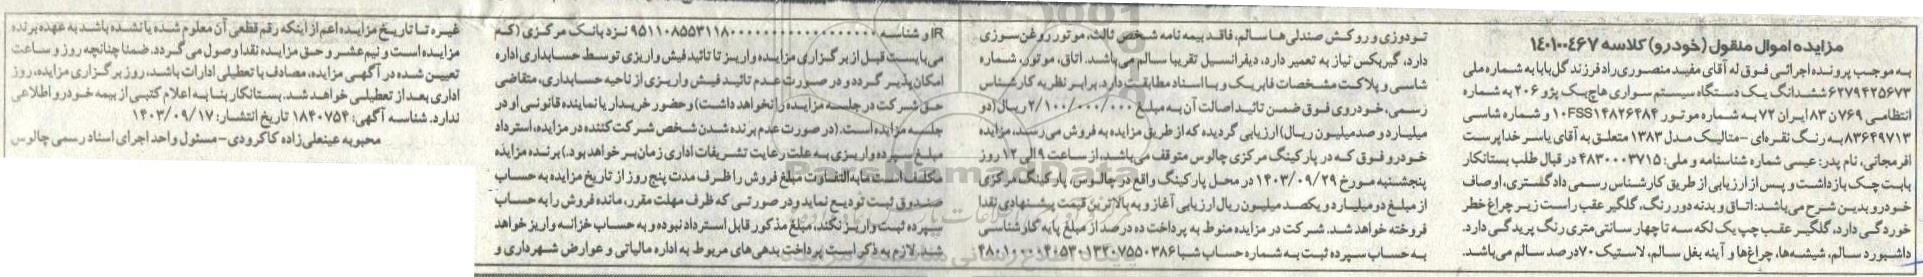 مزایده اموال منقول (خودرو) کلاسه ۱۴۰۱۰۰۴۶۷
به موجب پرونده اجرائی فوق له آقای مفید منصوری راد فرزند گل بابا به شماره ملی
۶۲۷۹۴۲۵۶۷۳ ششدانگ یک دستگاه سیستم سواری هاچ بک پژو ۲۰۶ به شماره
انتظامی ۷۶۹ن۸۳ ایران ۷۲ به شماره موتور ۱۰FSS۱۴۸۲۶۴۸۴ و شماره شاسی
۸۳۶۴۹۷۱۳ به رنگ نقره ای -متالیک مدل ۱۳۸۳ متعلق به آقای یاسر خداپرست
افرمجانی، نام پدر: عیسی شماره شناسنامه و ملی: ۴۸۳۰۰۰۳۷۱۵ در قبال طلب بستانکار
بابت چک بازداشت و پس از ارزیابی از طریق کارشناس رسمی دادگستری، اوصاف
خودرو بدین شرح می باشد: اتاق و بدنه دور رنگ، گلگیر عقب راست زیر چراغ خطر
خوردگی دارد، گلگیر عقب چپ یک لکه سه تا چهار سانتی متری رنگ پریدگی دارد.
داشبورد سالم، شیشه ها، چراغ ها و آینه بغل سالم، لاستیک ۷۰ درصد سالم می باشد.
تودوزی و روکش صندلی ها سالم، فاقد بیمه نامه شخص ثالث، موتور روغن سوزی
دارد، گیربکس نیاز به تعمیر دارد، دیفرانسیل تقریبا سالم می باشد. اتاق، موتور، شماره
شاسی و پلاکت مشخصات فابریک و با اسناد مطابقت دارد. برابر نظریه کارشناس
رسمی، خودروی فوق ضمن تائید اصالت آن به مبلغ ۲/۱۰۰/۰۰۰/۰۰۰ ریال (دو
میلیارد و صد میلیون ریال) ارزیابی گردیده که از طریق مزایده به فروش می رسد، مزایده
خودرو فوق که در پارکینگ مرکزی چالوس متوقف می باشد، از ساعت ۹ الی ۱۲ روز
پنجشنبه مورخ ۱۴۰۳/۰۹/۲۹ در محل پارکینگ واقع در چالوس، پارکینگ مرکزی
از مبلغ دو میلیارد و یکصد میلیون ریال ارزیابی آغاز و به بالاترین قیمت پیشنهادی نقدا
فروخته خواهد شد. شرکت در مزایده منوط به پرداخت ده درصد از مبلغ پایه کارشناسی
به حساب سپرده ثبت به شماره حساب شبا
IR و شناسه نزد بانک مرکزی (کم
می بایست قبل از برگزاری مزایده واریز تا تائید فیش واریزی توسط حسابداری اداره
امکان پذیر گردد و در صورت عدم تائید فیش واریزی از ناحیه حسابداری، متقاضی
حق شرکت در جلسه مزایده را نخواهد داشت) و حضور خریدار یا نماینده قانونی او در
جلسه مزایده است. (در صورت عدم برنده شدن شخص شرکت کننده در مزایده، استرداد
مبلغ سپرده واریزی به علت رعایت تشریفات اداری زمان بر خواهد بود.) برنده مزایده
مکلف است مابه التفاوت مبلغ فروش را ظرف مدت پنج روز از تاریخ مزایده به حساب
صندوق ثبت تودیع نماید و در صورتی که ظرف مهلت مقرر، مانده فروش را به حساب
سپرده ثبت واریز نکند، مبلغ مذکور قابل استرداد نبوده و به حساب خزانه واریز خواهد
شد. لازم به ذکر است پرداخت بدهی های مربوط به اداره مالیاتی و عوارض شهرداری و
غیره تا تاریخ مزایده اعم از اینکه رقم قطعی آن معلوم شده یا نشده باشد به عهده برنده
مزایده است و نیم عشر و حق مزایده نقدا وصول می گردد. ضمنا چنانچه روز و ساعت
تعیین شده در آگهی مزایده، مصادف با تعطیلی ادارات باشد، روز برگزاری مزایده، روز
اداری بعد از تعطیلی خواهد شد. بستانکار بنا به اعلام کتبی از بیمه خودرو اطلاعی
ندارد. شناسه آگهی: ۱۸۴۰۷۵۴ تاریخ انتشار: ۱۴۰۳/۰۹/۱۷
محبوبه عینعلی زاده کاکرودی-مسئول واحد اجرای اسناد رسمی چالوس
ParsNamadData